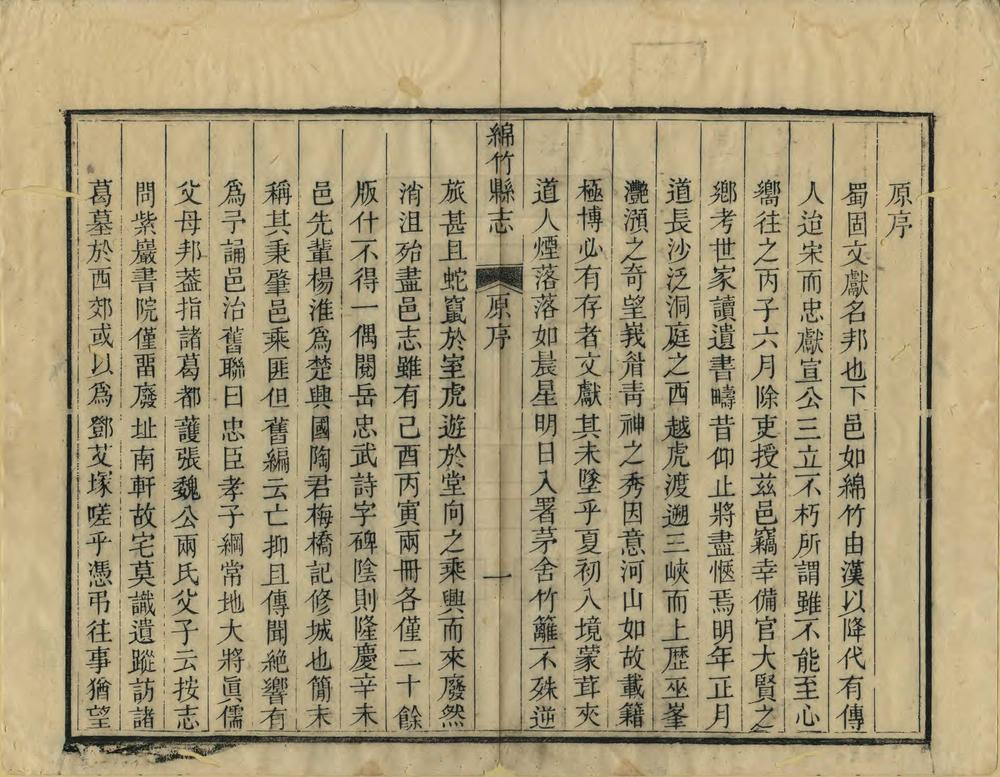 原序
蜀固文獻名邦也下邑如綿竹由漢以降代有傳
人迨宋而忠獻宣公三立不朽所謂雖不能至心
嚮往之丙子六月除吏授茲邑竊幸備官大賢之
鄉考世家讀遺書疇昔仰止將盡愜焉明年正月
道長沙泛洞庭之西越虎渡遡三峽而上歷巫峯
灩澦之奇望峩眉靑神之秀因意河山如故載籍
極博必有存者文獻其未墜乎夏初入境蒙茸夾
道人煙落落如晨星明日入署茅舍竹籬不殊逆
綿竹縣志
原序
一
旅甚且蛇竄於室虎遊於堂向之乘興而來廢然
消沮殆盡邑志雖有己酉丙寅兩冊各僅二十餘
版什不得一偶閱岳忠武詩字碑陰則隆慶辛未
邑先輩楊淮爲楚興國陶君梅橋記修城也簡末
稱其秉肇邑乘匪但舊編云亡抑且傳聞絶響有
爲予誦邑治舊聯曰忠臣孝子綱常地大將眞儒
父母邦葢指諸葛都護張魏公兩氏父子云按志
問紫巖書院僅畱廢址南軒故宅莫識遺蹤訪諸
葛墓於西郊或以爲鄧艾塚嗟乎憑弔往事猶望